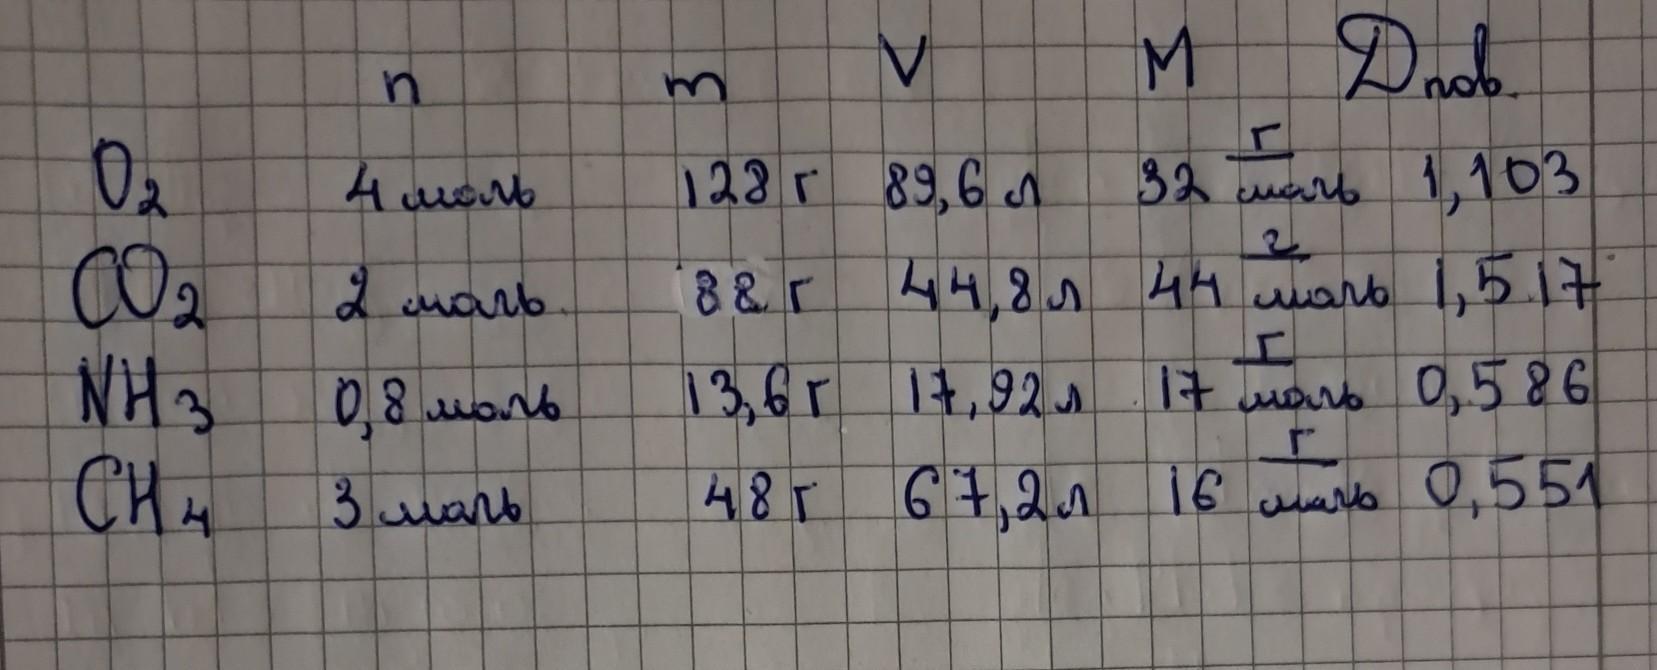 n m V M Dпов.
O2 4 моль 128 г 89,6 л 32 г/моль 1,103
CO2 2 моль 88 г 44,8 л 44 г/моль 1,517
NH3 0,8 моль 13,6 г 17,92 л 17 г/моль 0,586
CH4 3 моль 48 г 67,2 л 16 г/моль 0,551